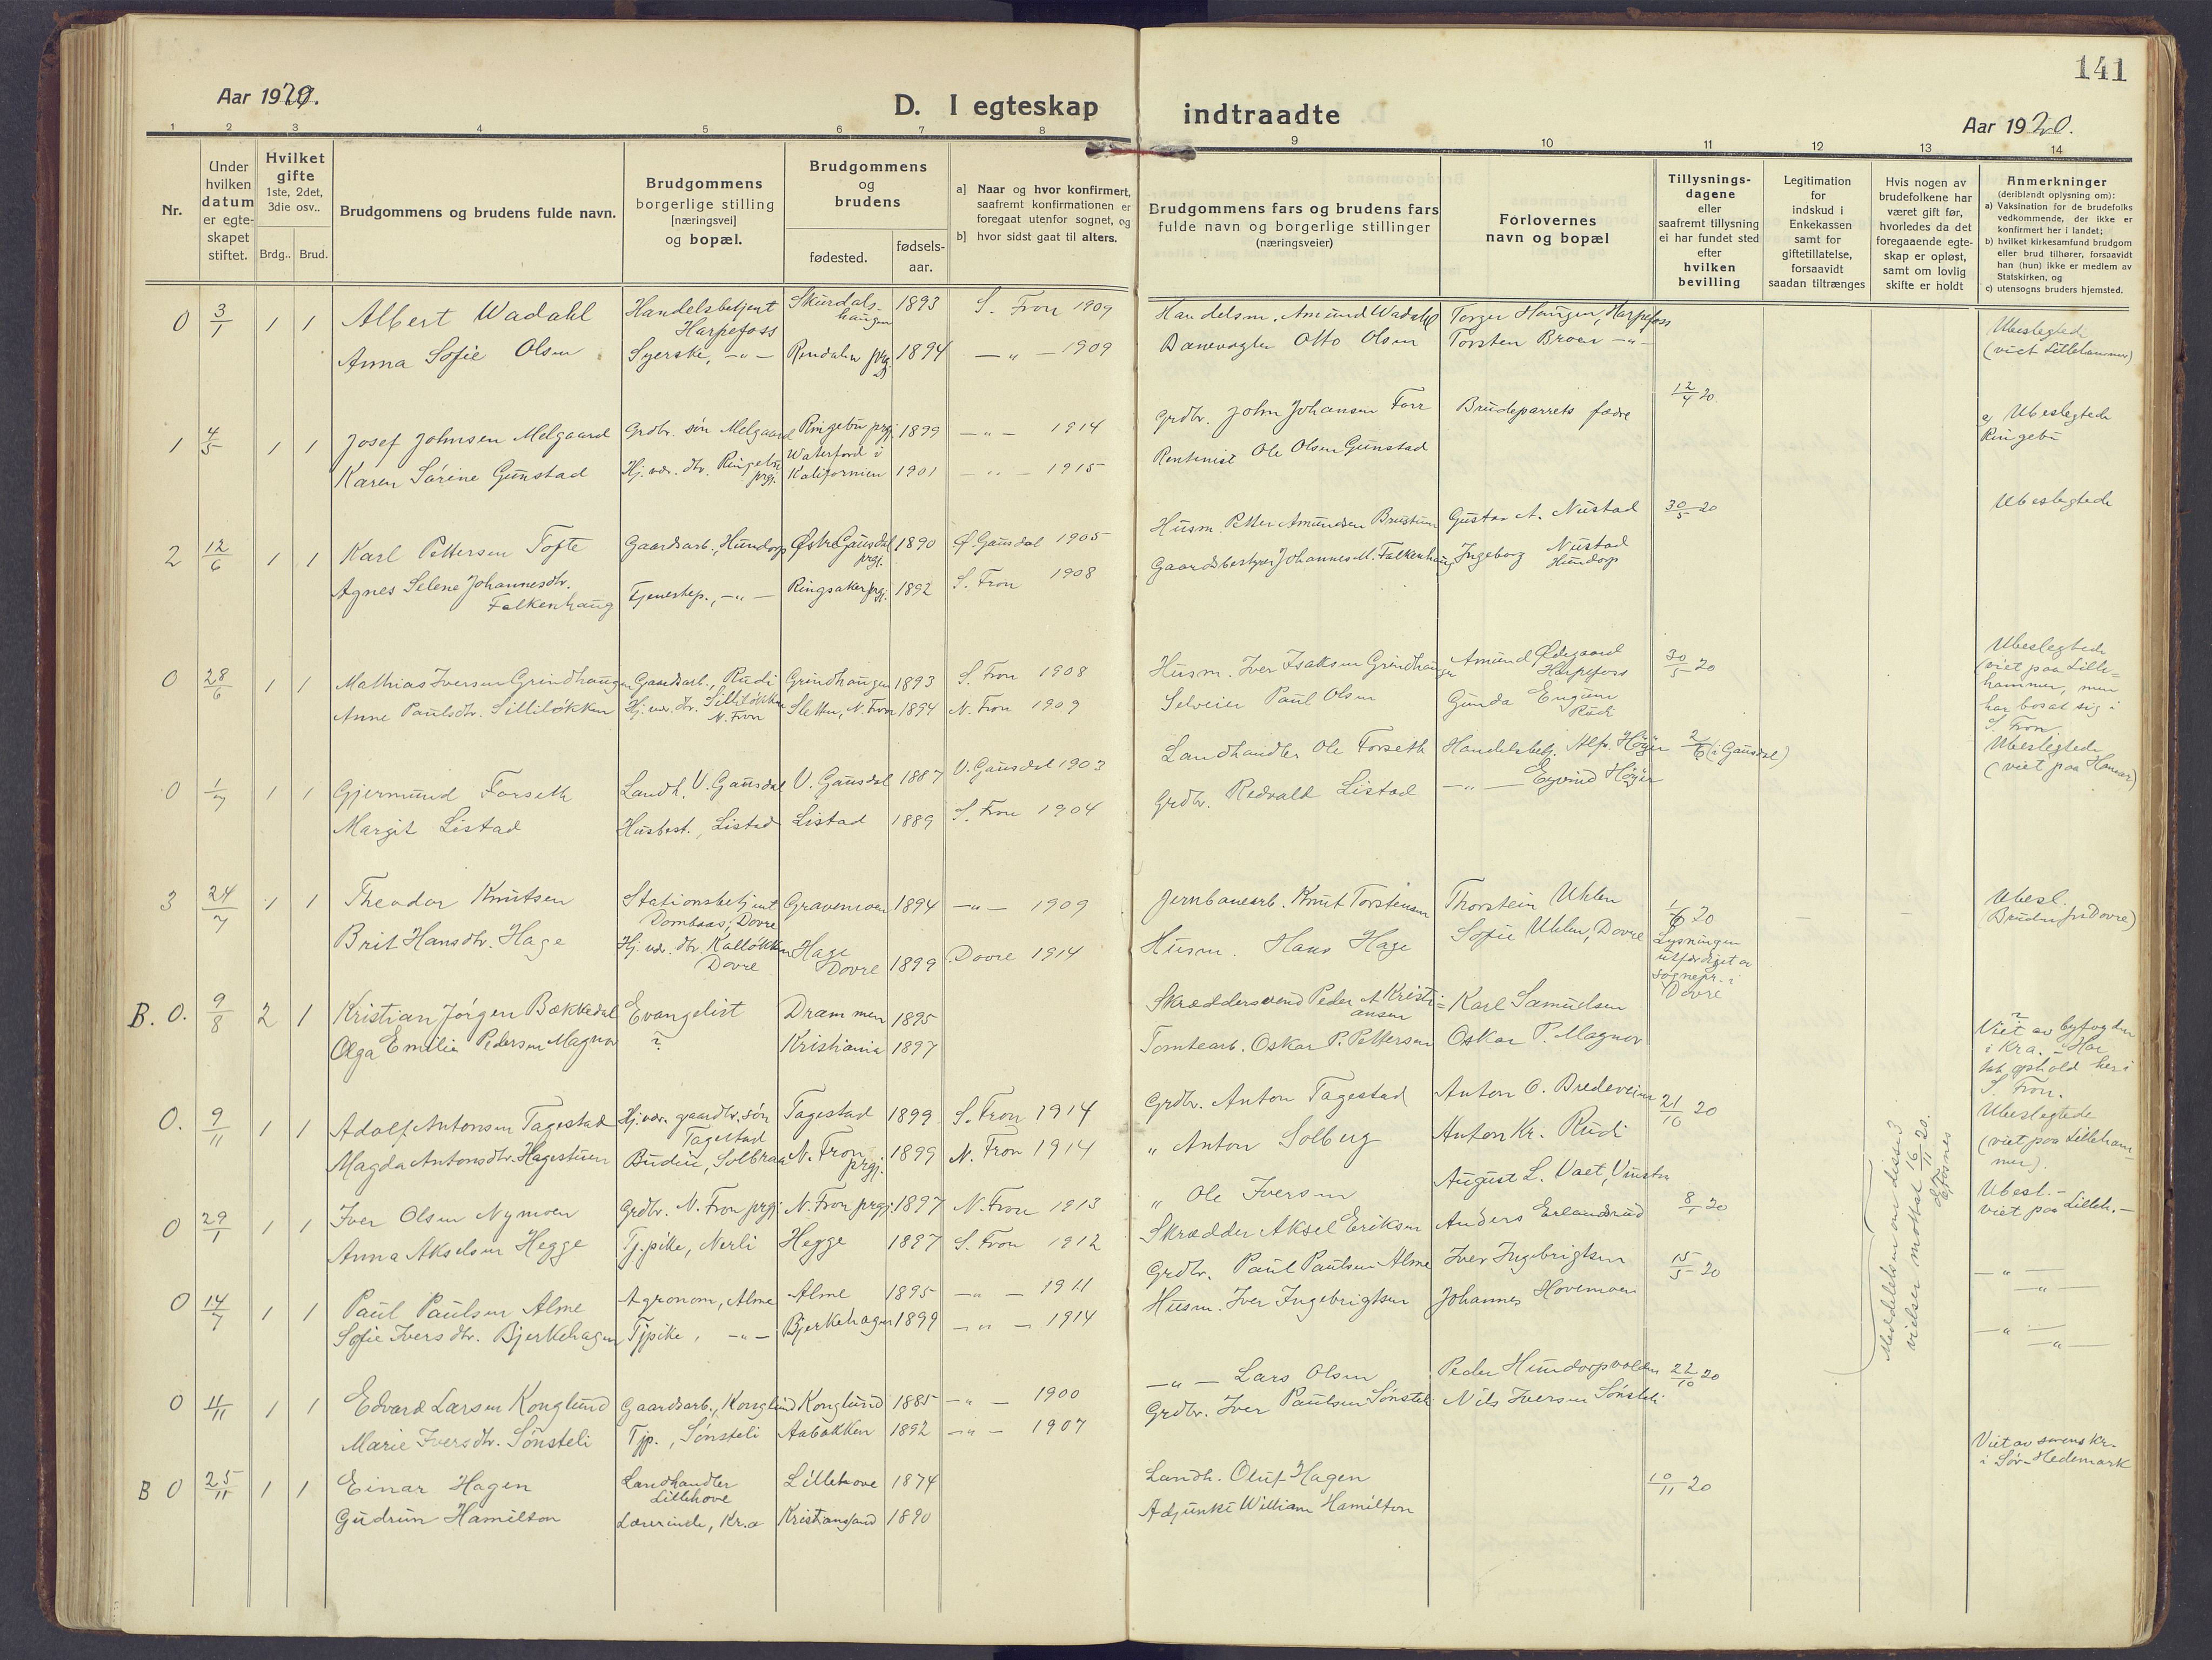 141
Aar 1920.
D. I egteskap
indtraadte
Aar 1920.
1 2 3 4 5 6 7 8 9 10 11 12 13 14
Nr.
Under hvilken datum er egteskapet stiftet.
Hvilket gifte
1ste, 2det, 3die osv..
Brdg.. Brud.
Brudgommens og brudens fulde navn.
Brudgommens borgerlige stilling [næringsvei] og bopæl.
Brudgommens og brudens
fødested.
fødsels-aar.
a] Naar og hvor konfirmert, saafremt konfirmationen er foregaat utenfor sognet, og
b] hvor sidst gaat til alters.
Brudgommens fars og brudens fars fulde navn og borgerlige stillinger (næringsveier)
Forlovernes navn og bopæl
Tillysnings-dagene eller saafremt tillysning ei har fundet sted efter hvilken bevilling
Legitimation for indskud i Enkekassen samt for giftetillatelse, forsaavidt saadan tiltrænges
Hvis nogen av brudefolkene har været gift før, hvorledes da det foregaaende egte-skap er opløst, samt om lovlig skifte er holdt
Anmerkninger (deriblandt oplysning om):
a) Vaksination for de brudefolks vedkommende, der ikke er konfirmert her i landet;
b) hvilket kirkesamfund brudgom eller brud tilhører, forsaavidt han (hun) ikke er medlem av Statskirken, og
c) utensogns bruders hjemsted.
0 3/1 1 1 Albert Wadahl Handelsbetjent Harpefoss Skurdals-haugen 1893 S. Fron 1909 Handelsm. Amund Wadahl Torger Haugen, Harpefoss Ubeslegtede
Anna Sofie Olsen Syerske, -"- 1894 -"- 1909 Banevogter Otto Olsen Torsten Broen -"- (viet Lillehammer)
1 4/5 1 1 Josef Johnsen Melgaard Grdbr. søn Melgaard Ringebu prgj. 1899 -"- 1914 Grdbr. John Johansen Forr Brudeparrets fædre 12/4 20 Ubeslegtede
Karen Sørine Gunstad Hj. vær. dtr. Ringebu prgj. Waterford i Kalifornien 1901 -"- 1915 Rentenist Ole Olsen Gunstad Ringebu
2 12/6 1 1 Karl Pettersen Tofte Gaardsarb., Hundorp Østre Gausdal prgj. 1890 Ø. Gausdal 1905 Husm. Petter Amundsen Gustav A. Nustad 30/5 20 Ubeslegtede
Agnes Selene Johannesdtr. Falkenhaug Tjenestep., -"- Ringsaker prgj. 1892 S. Fron 1908 Gaardsbestyrer Johannes M. Falkenhaug Ingeborg Nustad Hundorp
0 28/6 1 1 Mathias Iversen Grindhaugen Gaardsarb., Rudi Grindhaugen 1893 S. Fron 1908 Husm. Iver Isaksen Grindhaugen Amund Ødegaard Harpefoss 30/5 20 Ubeslegtede
Anne Paulsdtr. Silliløkken Hj. vær. dtr. Silliløkken N. Fron Sletten, N. Fron 1894 N. Fron 1909 Selveier Paul Olsen Gunda Engum Rudi (viet paa Lille=hammer, men har bosat sig i S. Fron
0 1/7 1 1 Gjermund Forseth Landh. V. Gausdal V. Gausdal 1887 V. Gausdal 1903 Landhandler Ole Forseth Handelsbetj. Alf. Høyer 2/6 (i Gausdal) Ubeslegtede
Margit Listad Husbest., Listad Listad 1889 S. Fron 1904 Grdbr. Redvald Listad -"- Eyvind Høyer (viet paa Hamar)
3 24/7 1 1 Theodor Knutsen Stationsbetjent Dombaas, Dovre Gravemoen 1894 -"- 1909 Jernbanearb. Knut Torstensen Thorstein Uhlen 1/6 20 Ubesl.
Brit Hansdtr. Hage Hj. vær. dtr. Kalløkken Dovre Hage Dovre 1899 Dovre 1914 Husm. Hans Hage Sofie Uhlen, Dovre Lysningen utfærdiget av sognepr. i Dovre (Bruden fra Dovre)
B. 0. 9/8 2 1 Kristian Jørgen Bækkedal Evangelist Drammen 1895 Skræddersvend Peder A. Kristi=ansen Karl Samuelsen ?
Olga Emilie Pedersen Magnor ? Kristiania 1897 Tomtearb. Oskar P. Pettersen Oskar P. Magnor Viet av byfogden i Kra. - Har tat ophold her i S. Fron.
0. 9/11 1 1 Adolf Antonsen Tagestad Hj. vær. gaardbr. søn Tagestad Tagestad 1899 S. Fron 1914 Grdbr. Anton Tagestad Anton O. Bredeveien 21/10 20 Ubeslegtede
Magda Antonsdtr. Hagestuen Budeie, Solbraa N. Fron prgj. 1899 N. Fron 1914 " Anton Solberg Anton Kr. Rudi (viet paa Lilleham-mer).
0 29/1 1 1 Iver Olsen Nymoen Grdbr. N. Fron prgj. N. Fron prgj. 1897 N. Fron 1913 " Ole Iversen August L. Vaet, Vinstra 8/1 20 Ubesl.-
Anna Akselsen Hegge Tj. pike, Nerli Hegge 1897 S. Fron 1912 Skrædder Aksel Eriksen Anders Erlandsrud viet paa Lilleh.-
0 14/7 1 1 Paul Paulsen Alme Agronom, Alme Alme 1895 -"- 1911 Grdbr. Paul Paulsen Alme Iver Ingebrigtsen 15/5 20 -"-
Sofie Iversdtr. Bjerkehagen Tjpike, -"- Bjerkehagen 1899 -"- 1914 Husm. Iver Ingebrigtsen Johannes Hovemoen -"-
0 4/11 1 1 Edvard Larsen Konglund Gaardsarb., Konglund Konglund 1885 -"- 1900 -"- Lars Olsen Peder Hundorpvolden 22/10 20 -"-
Marie Iversdtr. Sønsteli Tjp., Sønsteli Aabakken 1892 -"- 1907 Grdbr. Iver Paulsen Sønsteli Nils Iversen Sønsteli -"-
B 0 25/11 1 1 Einar Hagen Landhandler Lillehove Lillehove 1874 Landh. Oluf Hagen 10/11 20 Viet av sorenskr. i Sør-Hedemark
Gudrun Hamilton Lærerinde, Kr.a Kristiansand 1890 Adjunkt William Hamilton
Meddelelsen om disse 3
vielser mottat 16/11 20.